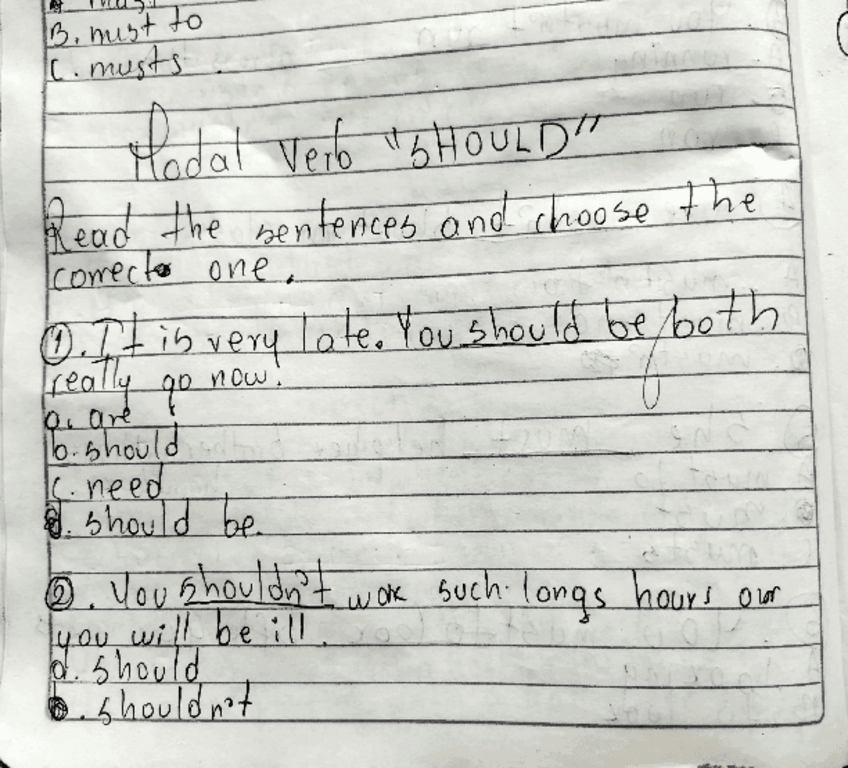 B. must to
C. musts.
Modal Verb "SHOULD"
Read the sentences and choose the
correct one.
1. It is very late. You should be / both
really go now!
a. are
b. should
c. need
d. should be.
2. You shouldn't work such longs hours our
you will be ill.
a. should
b. shouldn't